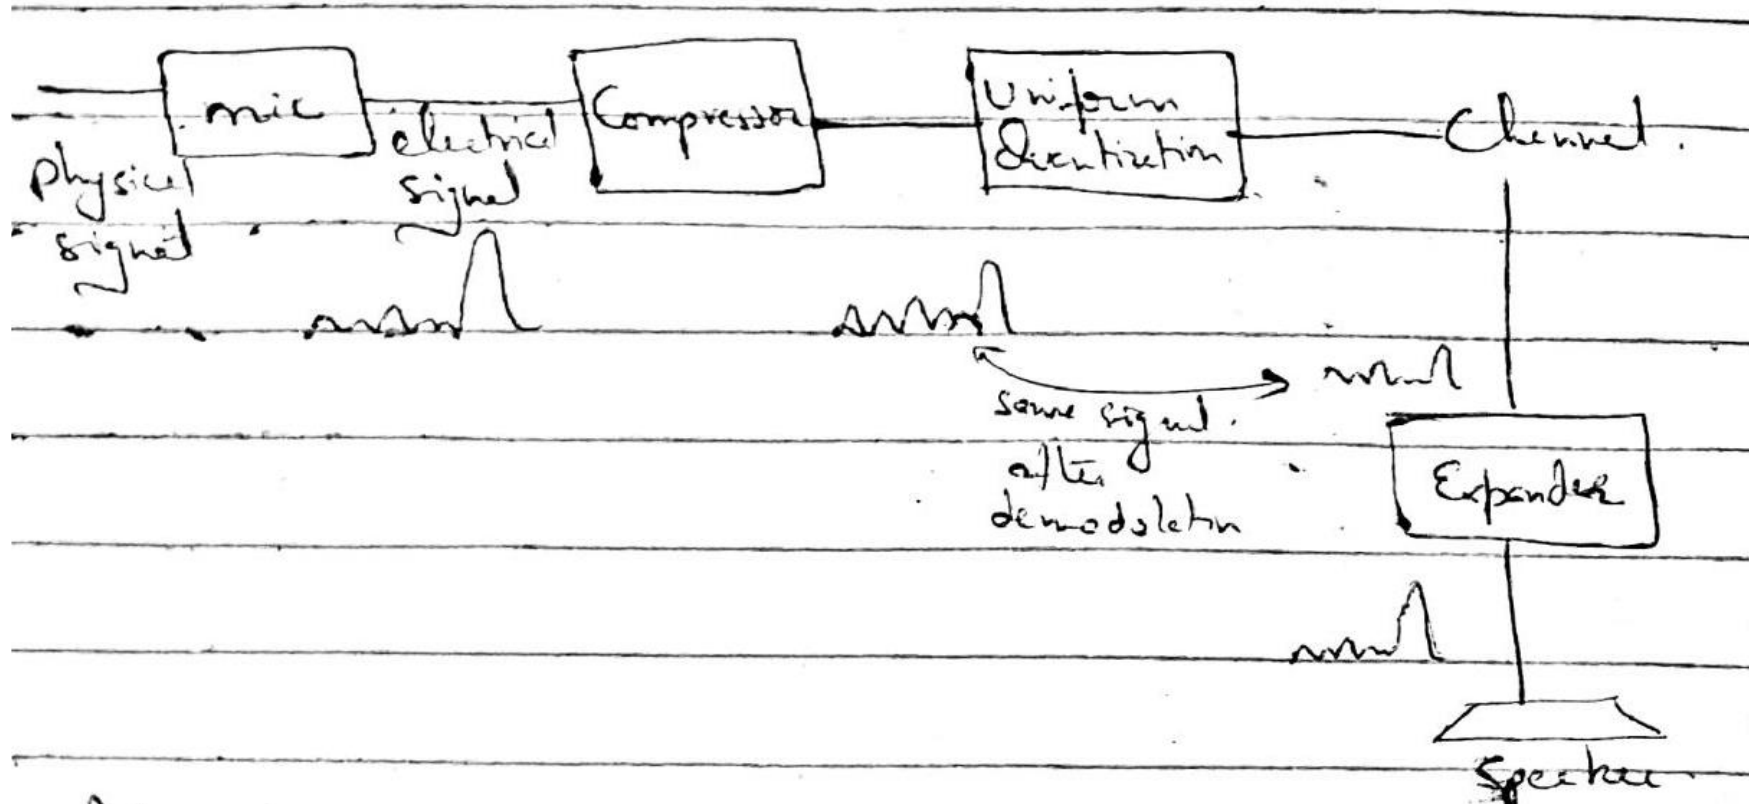 mic
Compressor
Uniform
Quantization
Channel.
physical
signal
electrical
signal
same signal.
after
demodulation
Expander
Speaker